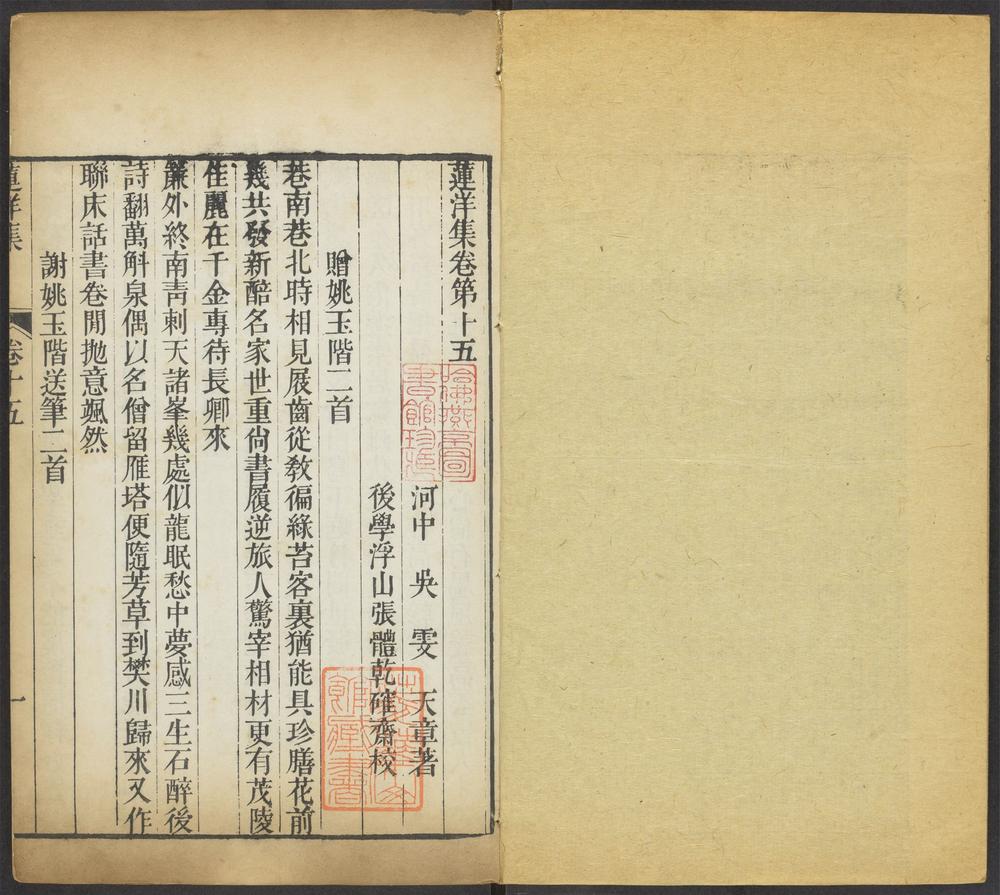 蓮洋集卷第十五
河中 吳 雯 天章著
後學浮山張體乾確齋校
贈姚玉階二首
巷南巷北時相見屐齒從敎徧綠苔客裏猶能具珍膳花前
幾共發新醅名家世重尙書履逆旅人驚宰相材更有茂陵
佳麗在千金專待長卿來
簾外終南靑刺天諸峯幾處似龍眠愁中夢感三生石醉後
詩翻萬斛泉偶以名僧留雁塔便隨芳草到樊川歸來又作
聯床話書卷閒拋意颯然
謝姚玉階送筆二首
蓮洋集 卷十五 一